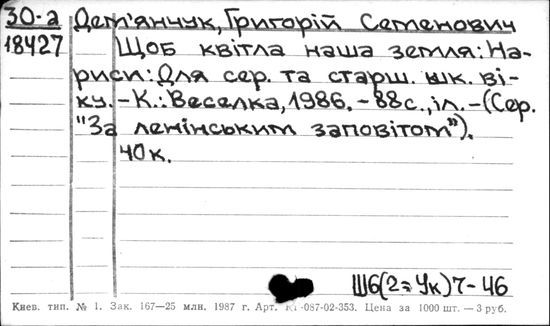 30-а Дем'янчук, Григорій Семенович
18427 Щоб квітла наша земля: На-
риси: Для сер. та старш. шк. ві-
ку. – К.: Веселка, 1986. – 88с., іл. – (Сер.
"За ленінським заповітом").
40к.
Ш6(2=Ук)7-46
Киев. тип. № 1. Зак. 167—25 млн. 1987 г. Арт. -087-02-353. Цена за 1000 шт. — 3 руб.